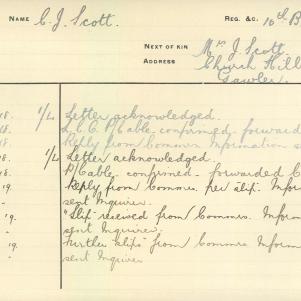 NAME C. J. Scott. REG. &C. 10th B
NEXT OF KIN Mrs J. Scott.
ADDRESS Church Hill
Gawler.
18. 1/L Letter acknowledged.
18. Cable, confirmed - forwarded
18. Reply from Commrs Information s
18. 1/L Letter acknowledged.
18. Cable, confirmed - forwarded C
19. Reply from Commrs. per slip. Inform
- sent Inquirer.
19. "Slip" received from Commrs. Infor
- sent Inquirer.
19. Further slips from Commrs Inform
- sent Inquirer